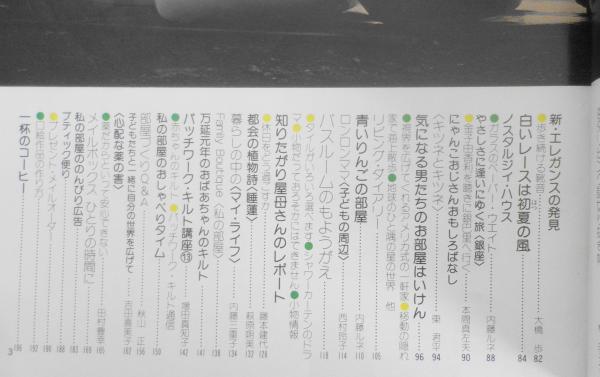 新・エレガンスの発見
●歩き続ける靴音 大橋 歩 82
白いレースは初夏の風 84
ノスタルジイ・ハウス
●ガラスのペーパー・ウエイト 内藤ルネ 88
やさしさに逢いにゆく旅〈銀座〉
●金子由香利を聴きに銀巴里へ行く 本間真左夫 90
にゃんこおじさんおもしろばなし
〈キツネとキツネ〉 東 君平 94
気になる男たちのお部屋はいけん 96
●視界を広げてくれるアメリカ式の一軒家●移動の隠れ
家で井上敏
●地球のひと隅の星の世界 他
リビング・ダイアリー 105
青いりんごの部屋 内藤ルネ 110
ロンロンママ〈子どもの周辺〉 西村玲子 114
バスルームのもようがえ 118
●タイルがいろいろ選べます●シャワーカーテンのドラ
マ●小物だっておろそかにはできません●小物情報
知りたがり屋母さんのレポート
●休日をどう過ごすか? 藤本建代 126
都会の植物詩〈睡蓮〉 萩原朔美 132
暮らしの中の〈マイ・ライフ〉 内藤三重子 134
Family Boutique 〈私の部屋〉 138
万延元年のおばあちゃんのキルト 141
パッチワーク・キルト講座⑬ 142
●赤ちゃんのキルト●パッチワーク・キルト通信
私の部屋のおしゃべりタイム 150
部屋づくりQ&A 秋山 正 156
子どもたちと一緒に自分の世界を広げて 吉田喜美子 162
〈心配な薬の害〉
●薬だからといって安心できない 田村豊幸 165
メイルボックス ひとりの時間に 169
私の部屋のんびり広告 183
ブティック便り 188
●プレゼント・メイルオーダー 190
●口絵作品の作り方 192
一杯のコーヒー 196
3